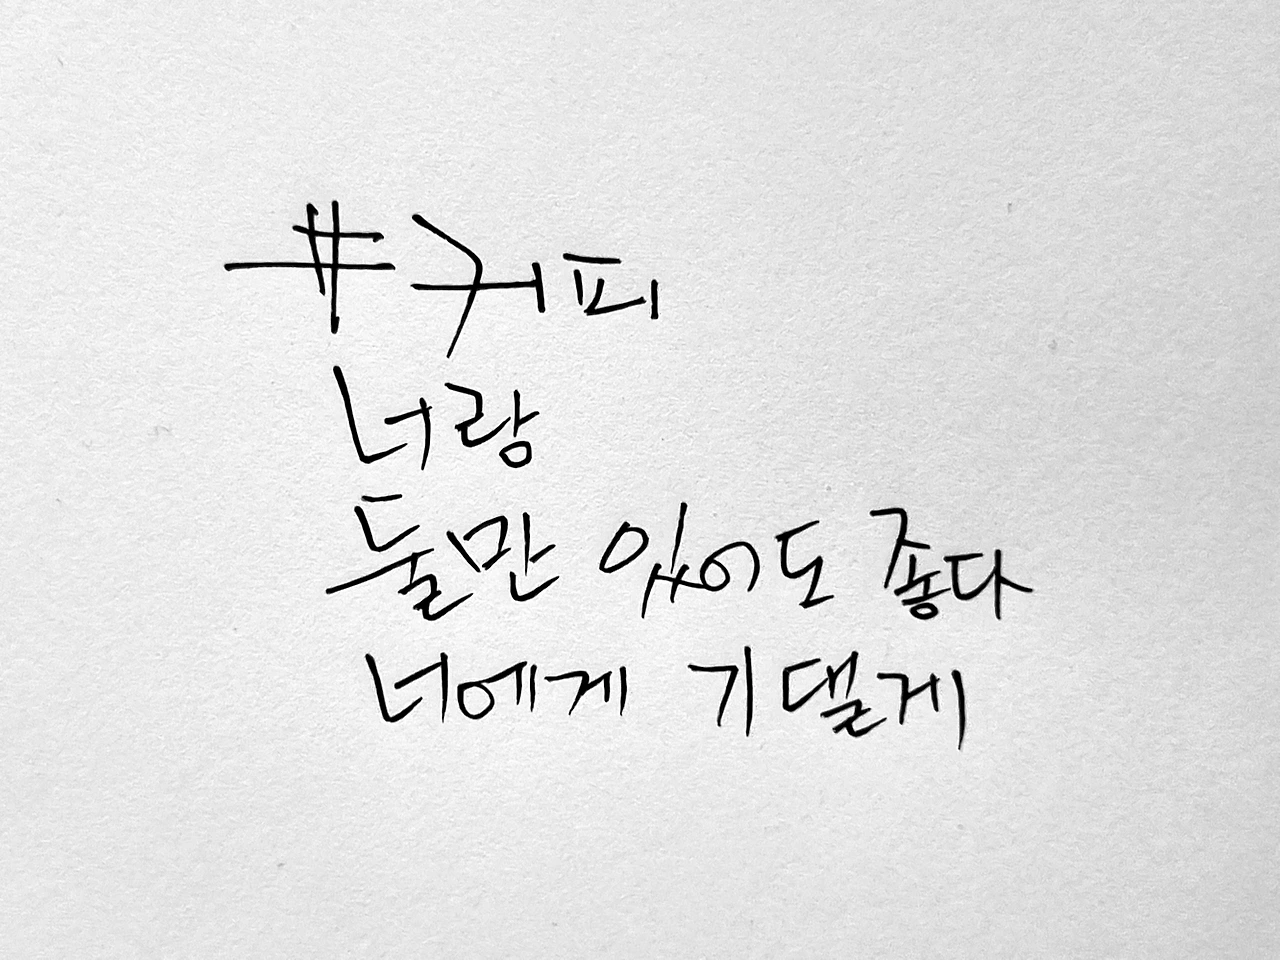 #커피
너랑
둘만 있어도 좋다
너에게 기댈게